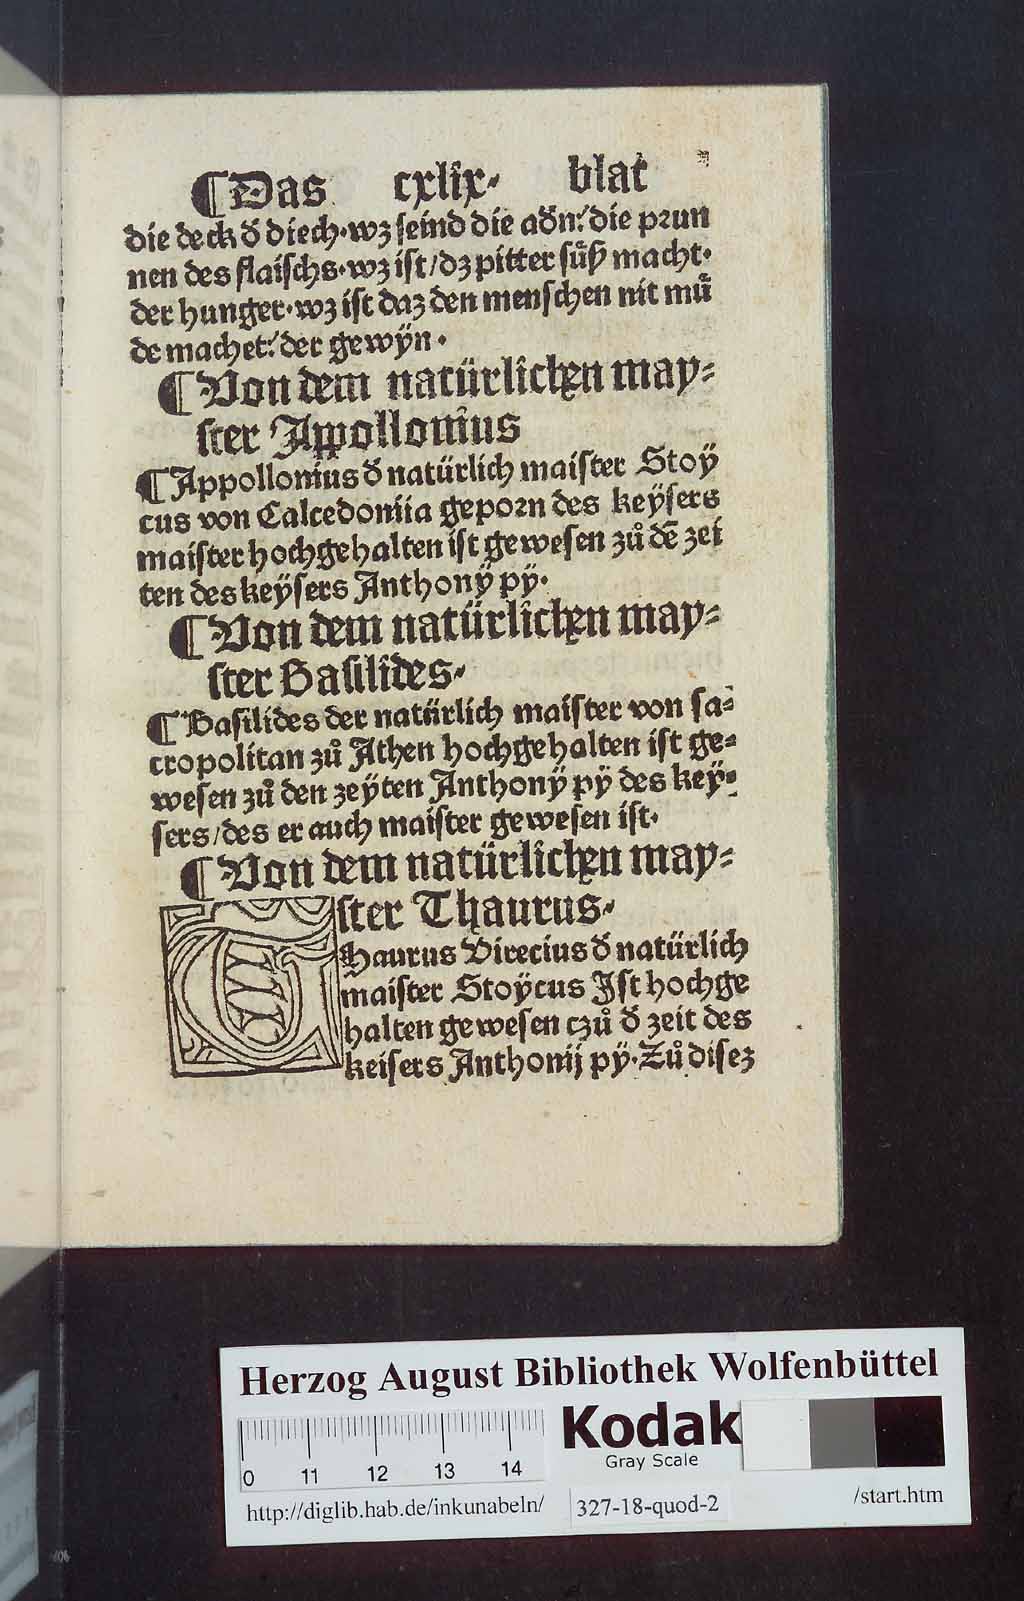 ¶Das cxlix· blat
die deck d̕ diech·wz seind die adn̕:̕die prun
nen des flaischs·wz ist/dz pitter süß macht·
der hunger·wz ist daz den menschen nit mů
de machet:̕der gewÿn·
¶Von dem natürlichen may⸗
ster Appollonius
¶Appollonius d̕ natürlich maister Stoÿ
cus von Calcedoniia geporn des keÿsers
maister hochgehalten ist gewesen zů dē zei
ten des keÿsers Anthonÿ pÿ·
¶Von dem natürlichen may⸗
ster Basilides·
¶Basilides der natürlich maister von sa⸗
cropolitan zů Athen hochgehalten ist ge⸗
wesen zů den zeÿten Anthonÿ pÿ des keÿ⸗
sers/des er auch maister gewesen ist·
¶Von dem natürlichen may⸗
ster Thaurus·
Thaurus Virecius d̕ natürlich
maister Stoÿcus Ist hochge
halten gewesen czů d̕ zeit des
keisers Anthonij pÿ·Zů disez
Herzog August Bibliothek Wolfenbüttel
0 11 12 13 14
Kodak
Gray Scale
http://diglib.hab.de/inkunabeln/ 327-18-quod-2 /start.htm